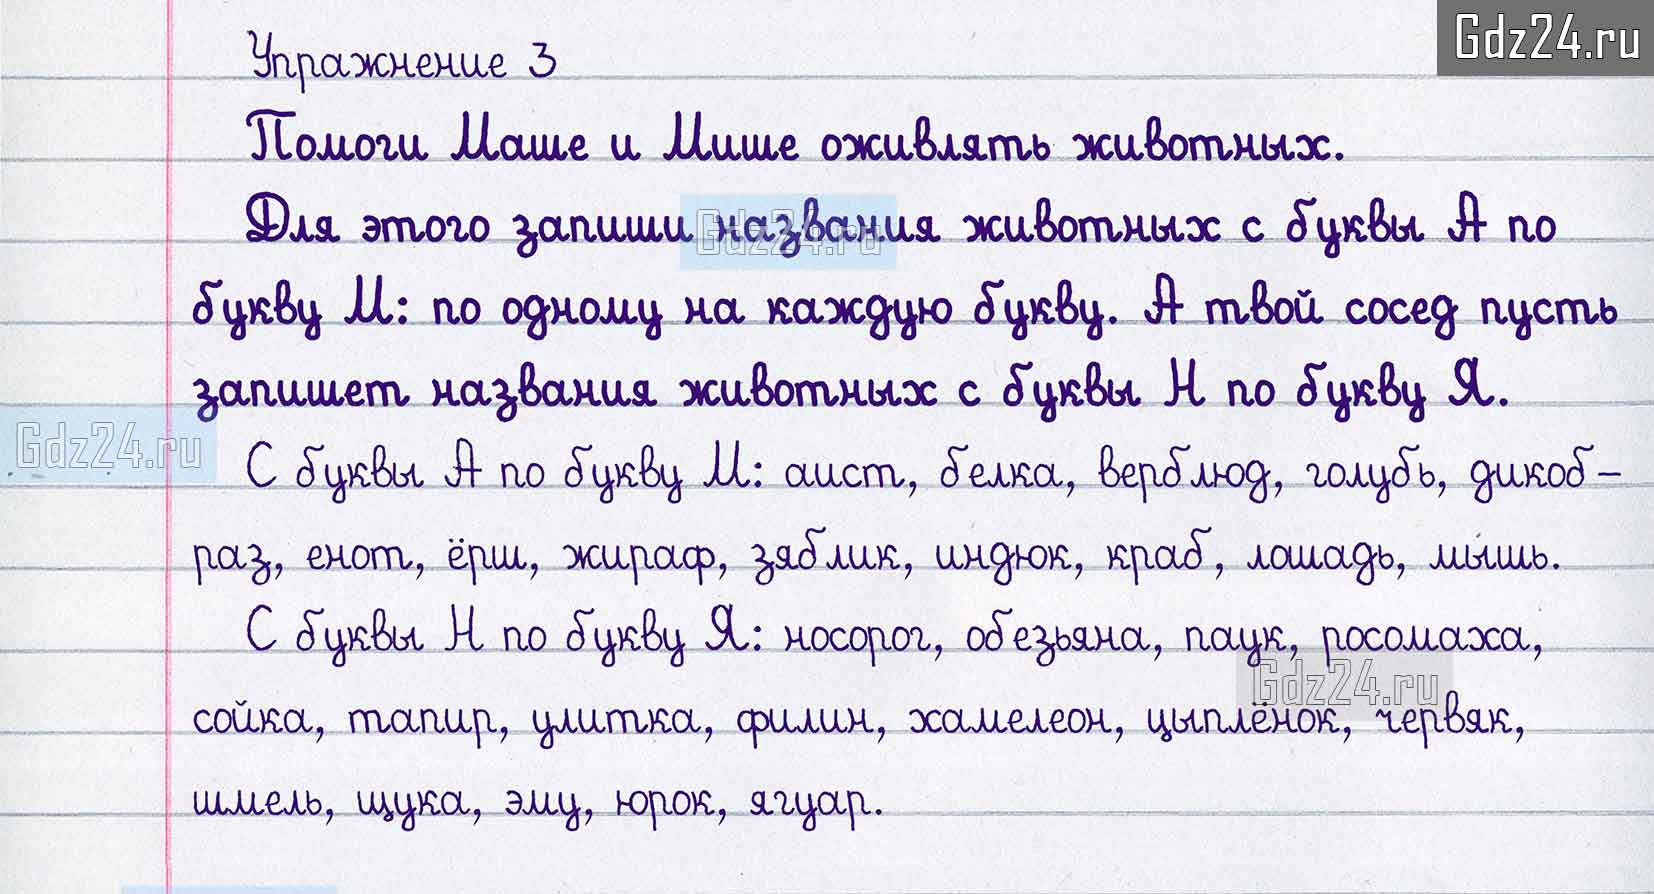 Gdz24.ru
Упражнение 3
Помоги Маше и Мише оживлять животных.
Для этого запиши названия животных с буквы А по
Gdz24.ru
букву М: по одному на каждую букву. А твой сосед пусть
запишет названия животных с буквы Н по букву Я.
Gdz24.ru
С буквы А по букву М: аист, белка, верблюд, голубь, дикоб-
раз, енот, ёрш, жираф, зяблик, индюк, краб, лошадь, мышь.
С буквы Н по букву Я: носорог, обезьяна, паук, росомаха,
Gdz24.ru
сойка, тапир, улитка, филин, хамелеон, цыплёнок, червяк,
шмель, щука, эму, юрок, ягуар.